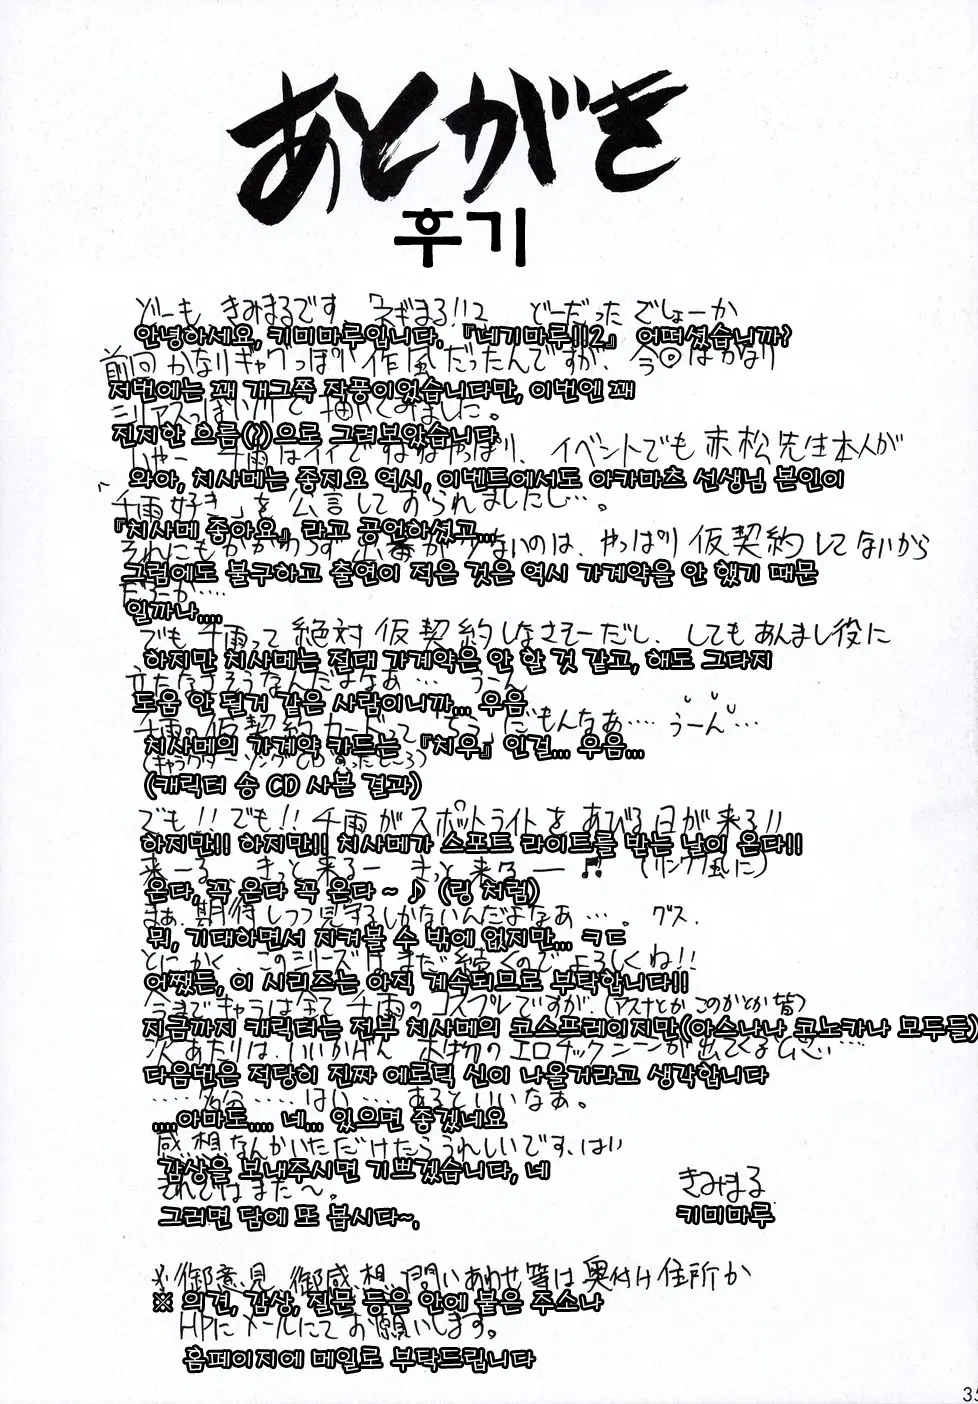 あとがき
후기
どーも きみまるです、ネギまる!!2 どーだったでしょーか
안녕하세요, 키미마루입니다, 『네기마루!!2』 어떠셨습니까?
前回かなりギャグっぽい作風だったんですが、今回はかなり
저번에는 꽤 개그쪽 작풍이었습니다만, 이번엔 꽤
진지한 흐름(?)으로 그려보았습니다
いやー 千雨はイイですねねやっぱり、イベントでも赤松先生本人が
와아, 치사메는 좋지요 역시, 이벤트에서도 아카마츠 선생님 본인이
千雨好き」を公言しておられましたし…。
『치사메 좋아요』 라고 공언하셨고...
それにもかかわらず出番が少ないのは、やっぱり仮契約してないから
그럼에도 불구하고 출연이 적은 것은 역시 가계약을 안 했기 때문
だろーか……
일까나....
でも千雨って絶対仮契約しなさそーだし、してもあんまし役に
하지만 치사메는 절대 가계약은 안 할 것 같고, 해도 그다지
立たなさそうなんだよなあ… うーん
도움 안 될거 같은 사람이니까... 우음
千雨の仮契約カードって「ちう」だもんなあ…… うーん…
치사메의 가계약 카드는 『치우』 인걸... 우음...
(キャラクターソングCD
(캐릭터 송 CD 사본 결과)
でも!!でも!!千雨がスポットライトをあびる日が来る!!
하지만!! 하지만!! 치사메가 스포트 라이트를 받는 날이 온다!!
来ーる、 きっと来るー きっと来るー ♬ (リング風に)
온다, 꼭 온다 꼭 온다 ~ ♪ (링 처럼)
まぁ、期待しつつ見守るしかないんだよなあ…。グス、
뭐, 기대하면서 지켜볼 수 밖에 없지만... ㅋㄷ
とにかく このシリーズはまだ続くのでよろしくね!!
어쨌든, 이 시리즈는 아직 계속되므로 부탁합니다!!
今までキャラは全て千雨のコスプレですが、(アスナとかこのかとか皆)
지금까지 캐릭터는 전부 치사메의 코스프레이지만(아스나나 코노카나 모두들)
次あたりは、いいかげん本物のエロチックシーンが出てくると思い…
다음번은 적당히 진짜 에로틱 신이 나올거라고 생각합니다
……多分……はい… あるといいなぁ。
....아마도.... 네... 있으면 좋겠네요
感想なんかいただけたらうれしいです、はい
감상을 보내주시면 기쁘겠습니다, 네
それではまた〜。
그러면 담에 또 봅시다~,
きみまる
키미마루
※御意見、御感想、問いあわせ等は奥付け住所か
※ 의견, 감상, 질문 등은 안에 붙은 주소나
HPにメールにてお願いします。
홈페이지에 메일로 부탁드립니다
35